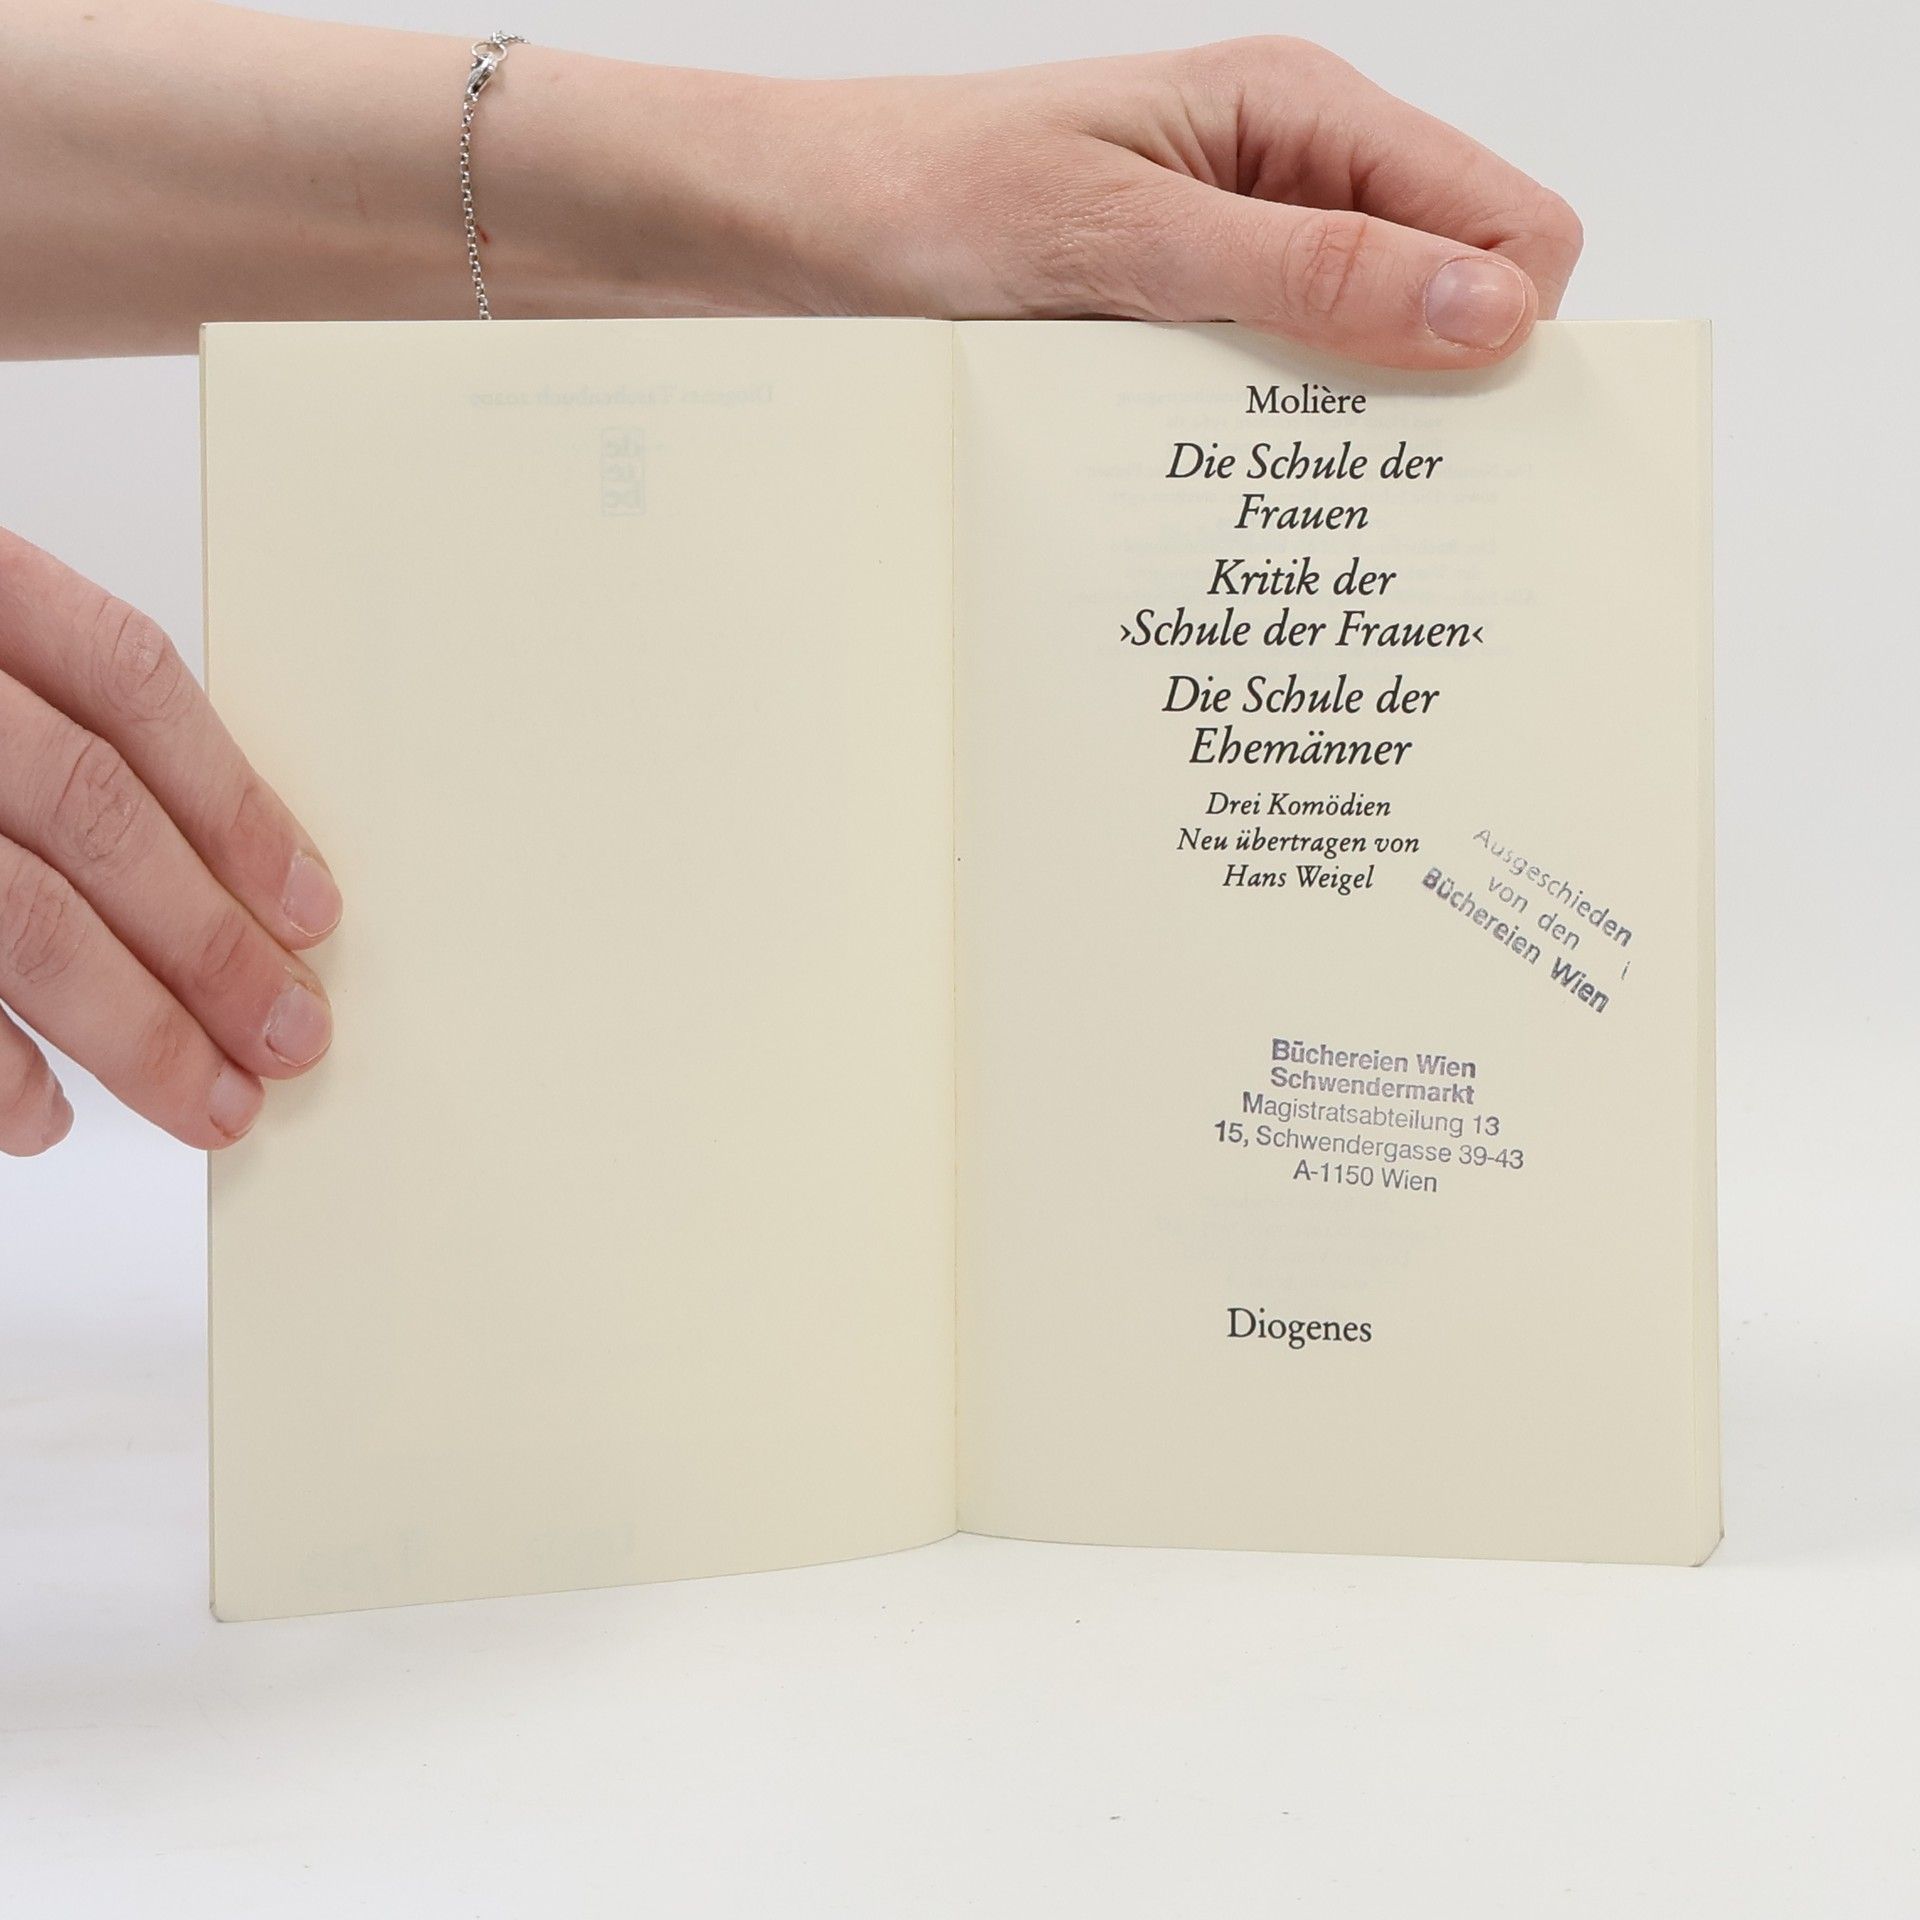 Molière
Die Schule der
Frauen
Kritik der
›Schule der Frauen‹
Die Schule der
Ehemänner
Drei Komödien
Neu übertragen von
Hans Weigel
Ausgeschieden
von den
Büchereien Wien
Büchereien Wien
Schwendermarkt
Magistratsabteilung 13
15, Schwendergasse 39-43
A-1150 Wien
Diogenes